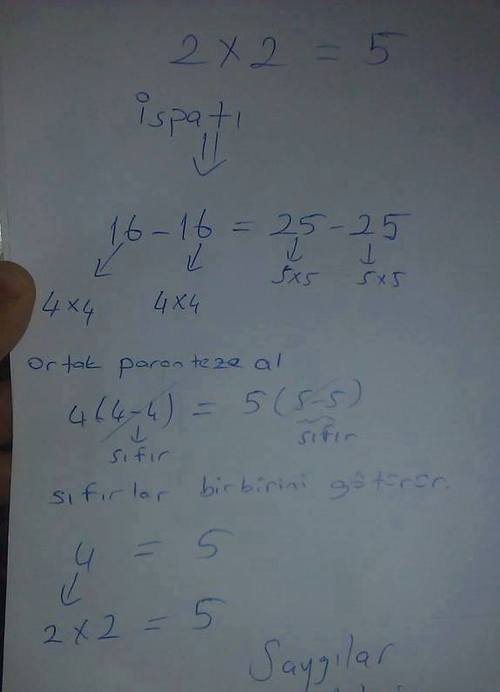 2 × 2 = 5
İspatı
16 - 16 = 25 - 25
4×4 4×4 5×5 5×5
ortak paranteze al
4(4-4) = 5(5-5)
sıfır sıfır
sıfırlar birbirini götürür.
4 = 5
2 × 2 = 5
Saygılar